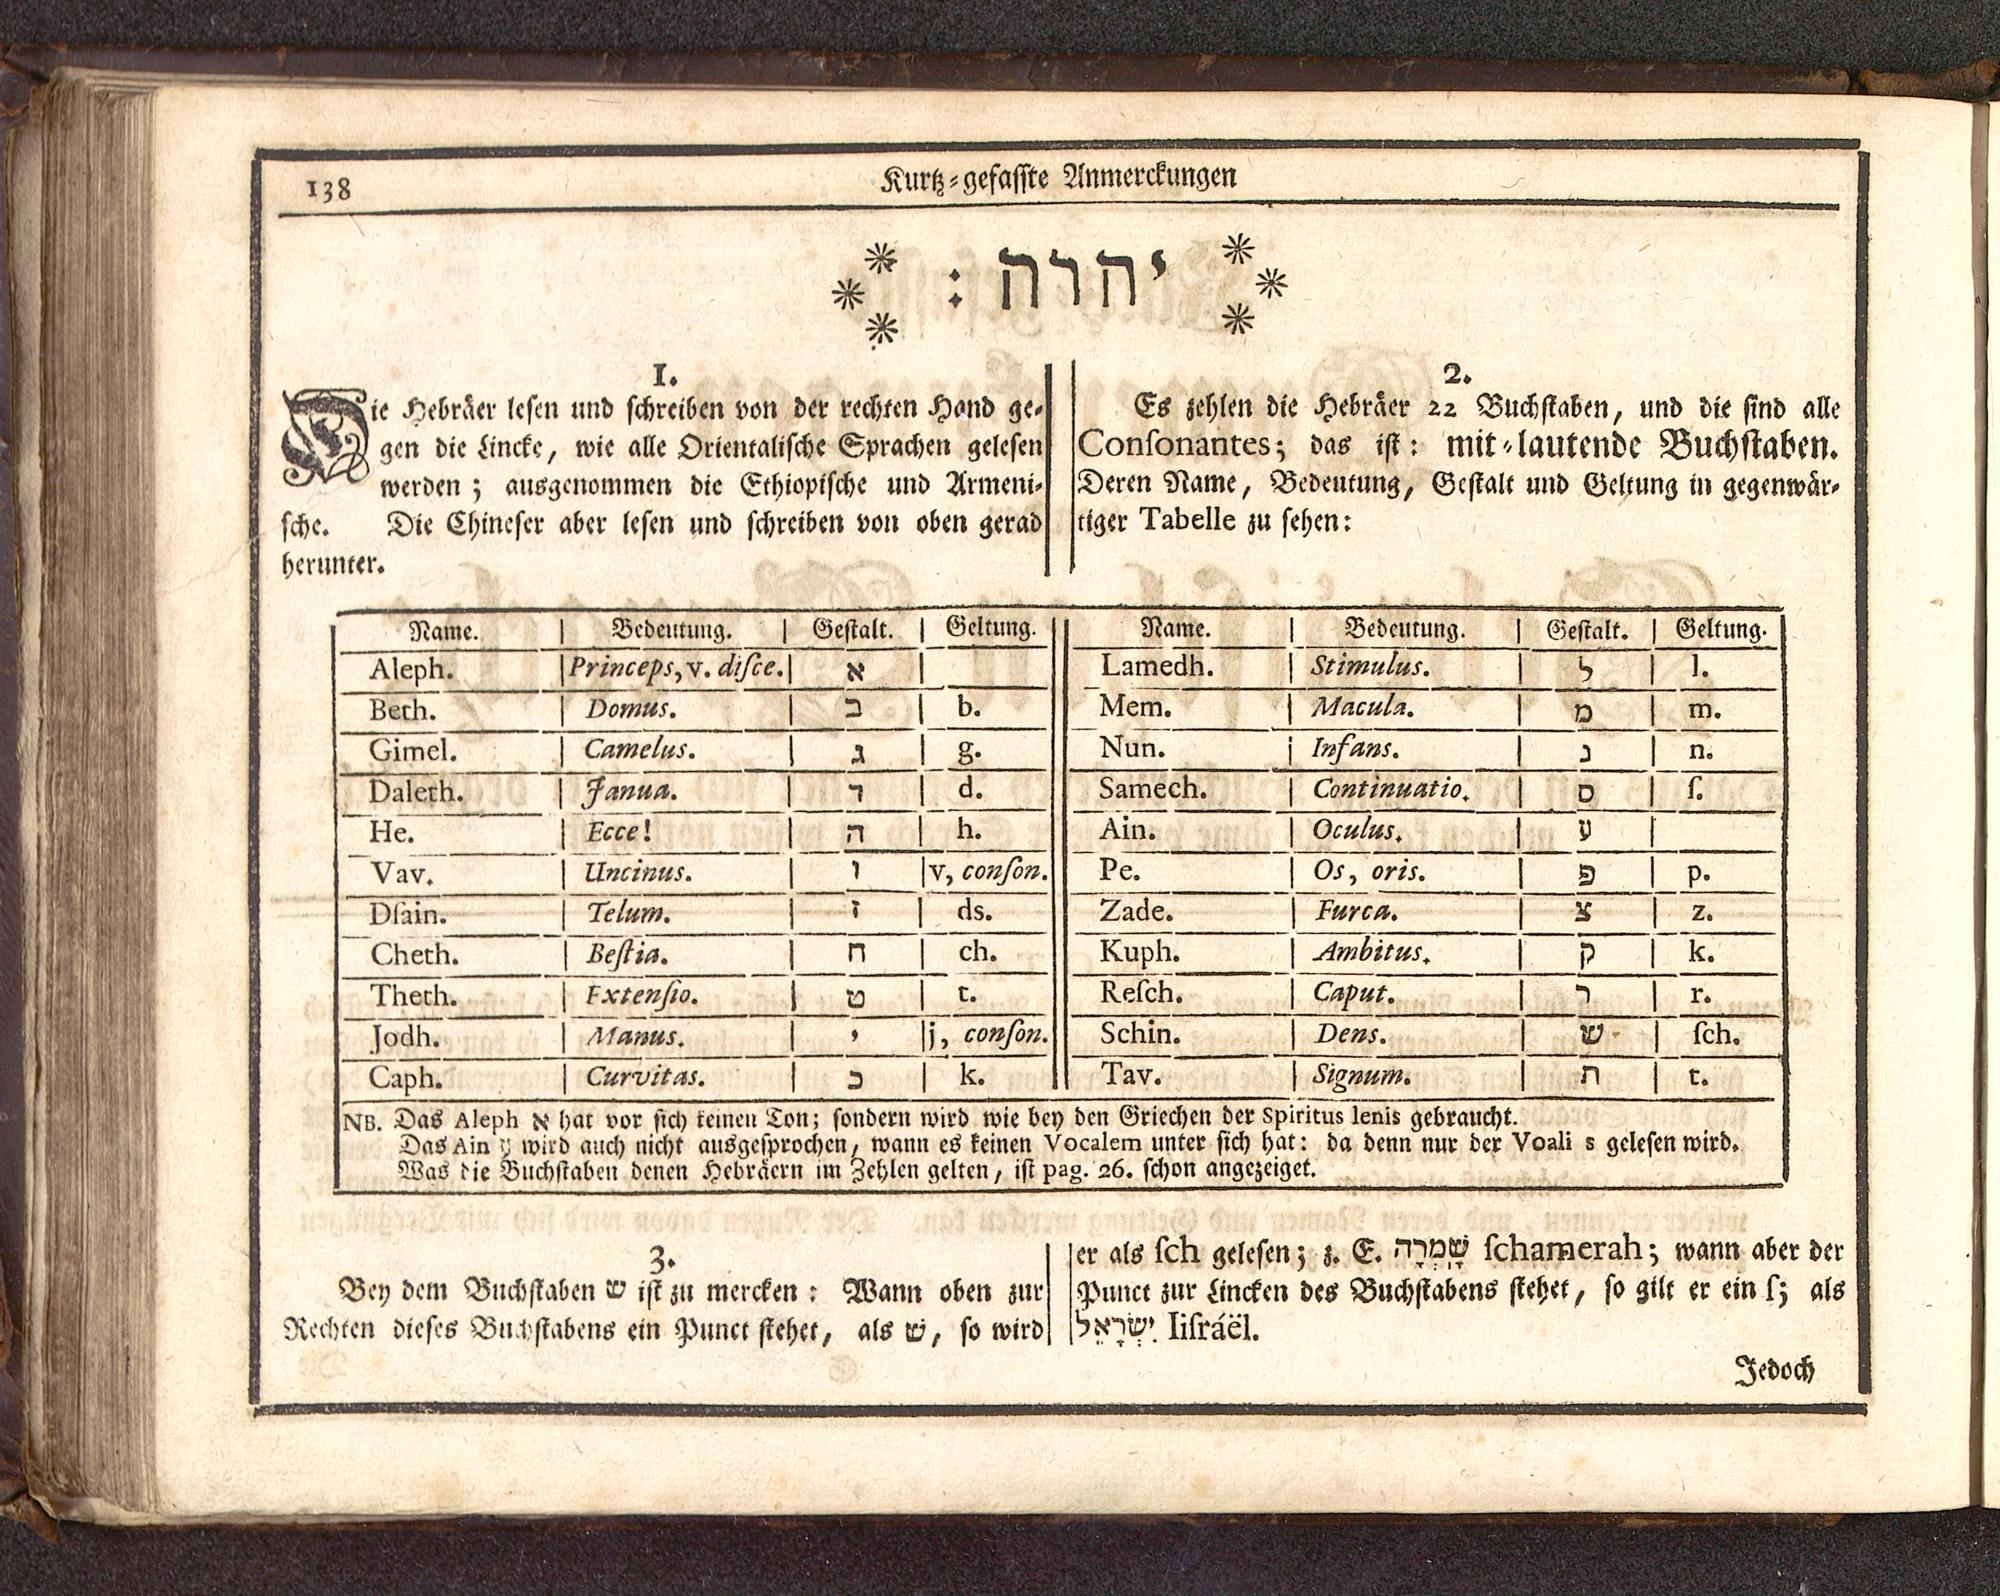 138
Kurtz-gefasste Anmerckungen
יהוה :
1.
Die Hebräer lesen und schreiben von der rechten Hand ge-
gen die Lincke, wie alle Orientalische Sprachen gelesen
werden; ausgenommen die Ethiopische und Armeni-
sche. Die Chineser aber lesen und schreiben von oben gerad
herunter.
2.
Es zehlen die Hebräer 22 Buchstaben, und die sind alle
Conſonantes; das ist: mit-lautende Buchstaben.
Deren Name, Bedeutung, Gestalt und Geltung in gegenwär-
tiger Tabelle zu sehen:
Name. Bedeutung. Gestalt. Geltung.
Aleph. Princeps, v. diſce. א
Beth. Domus. ב b.
Gimel. Camelus. ג g.
Daleth. Janua. ד d.
He. Ecce! ה h.
Vav. Uncinus. ו v, conſon.
Dſain. Telum. ז ds.
Cheth. Beſtia. ח ch.
Theth. Extenſio. ט t.
Jodh. Manus. י j, conſon.
Caph. Curvitas. כ k.
Name. Bedeutung. Gestalt. Geltung.
Lamedh. Stimulus. ל l.
Mem. Macula. מ m.
Nun. Infans. נ n.
Samech. Continuatio. ס ſ.
Ain. Oculus. ע
Pe. Os, oris. פ p.
Zade. Furca. צ z.
Kuph. Ambitus. ק k.
Reſch. Caput. ר r.
Schin. Dens. ש ſch.
Tav. Signum. ת t.
NB. Das Aleph א hat vor sich keinen Ton; sondern wird wie bey den Griechen der Spiritus lenis gebraucht.
Das Ain ע wird auch nicht ausgesprochen, wann es keinen Vocalem unter sich hat: da denn nur der Voali s gelesen wird.
Was die Buchstaben denen Hebräern im Zehlen gelten, ist pag. 26. schon angezeiget.
3.
Bey dem Buchstaben ש ist zu mercken: Wann oben zur
Rechten dieses Buchstabens ein Punct stehet, als שׁ, so wird
er als ſch gelesen; z. E. שָׁמְרָה ſchamerah; wann aber der
Punct zur Lincken des Buchstabens stehet, so gilt er ein ſ; als
יִשְׂרָאֵל Iiſráël.
Jedoch